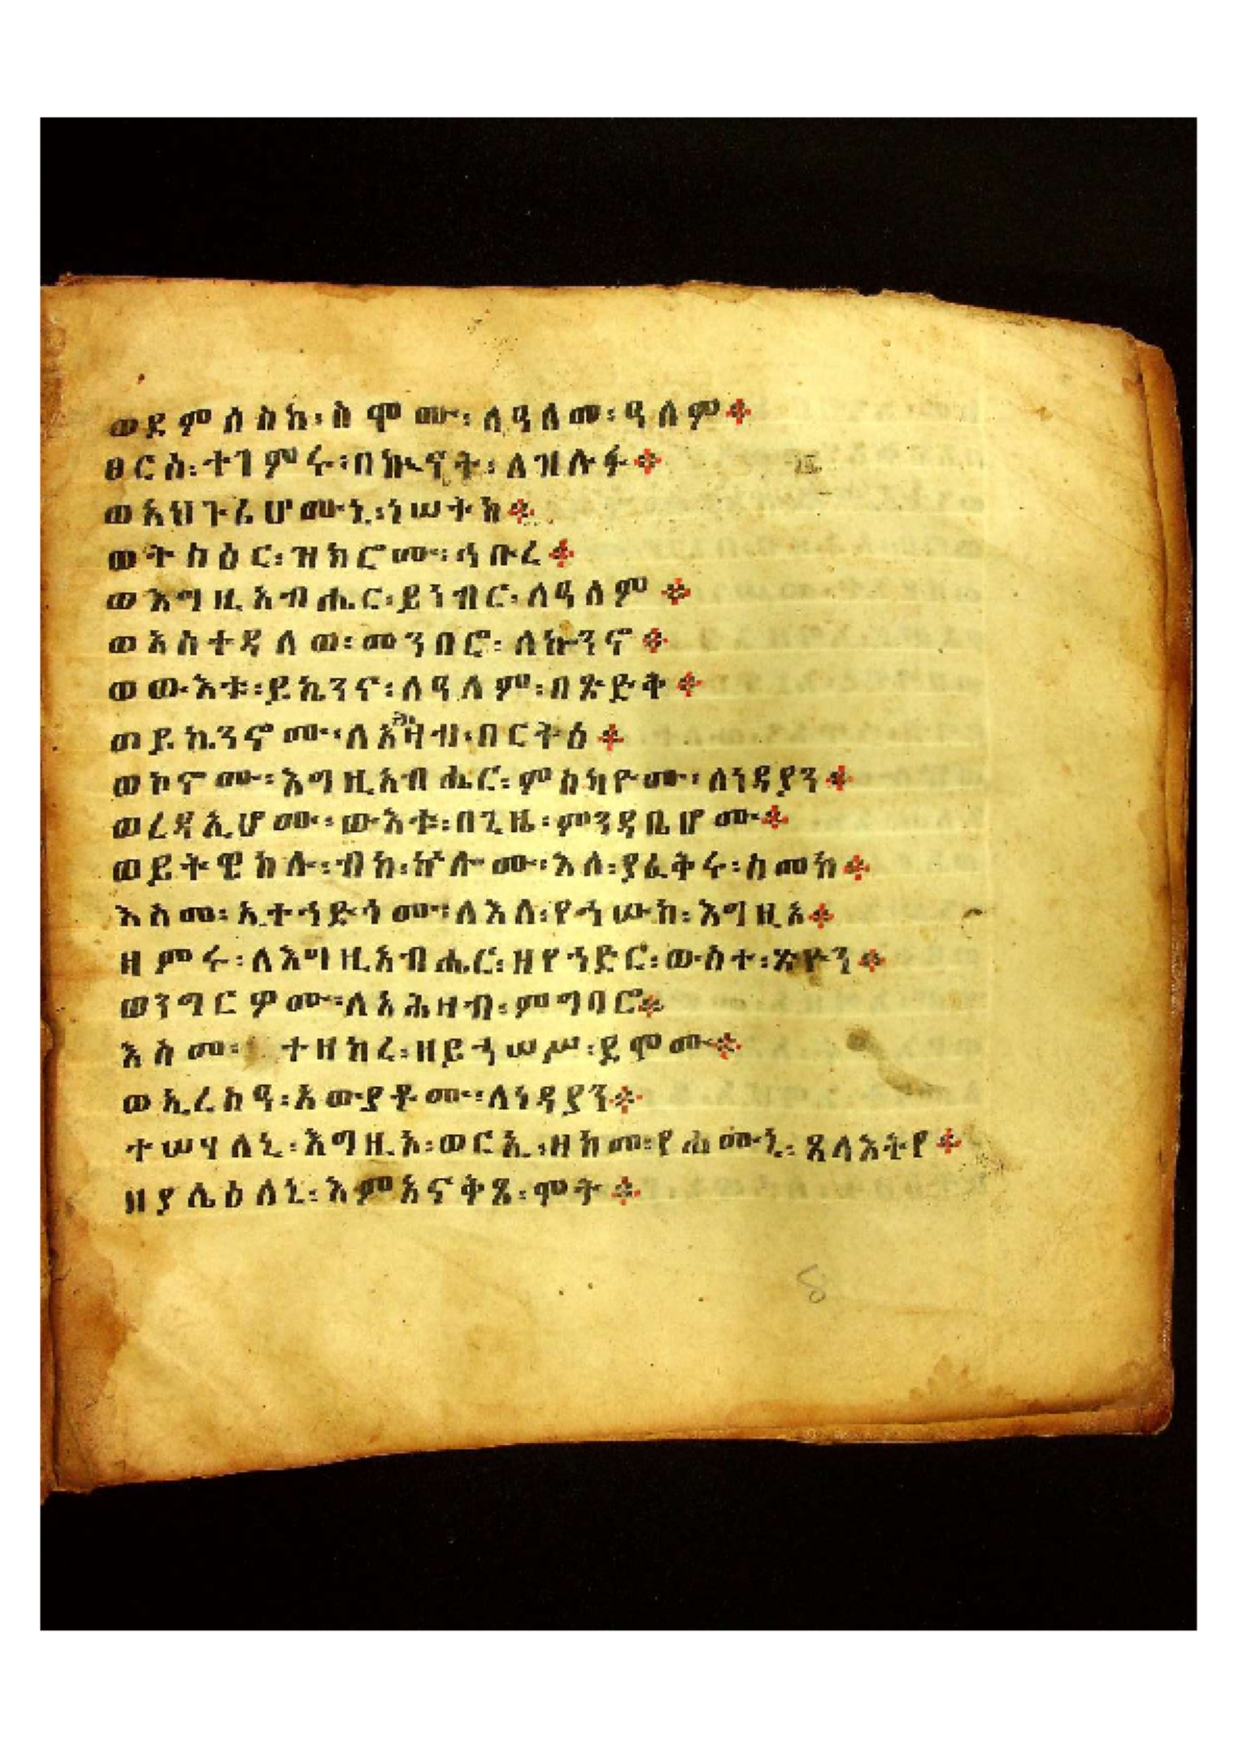 ወደምሰስከ፡ስሞሙ፡ለዓለመ፡ዓለም፨
ፀርስ፡ተገምሩ፡በኲናት፡ለዝሉፉ፨
ወአህጉሬሆሙኒ፡ነሠትከ፨
ወትስዕር፡ዝክሮሙ፡ኅቡረ፨
ወእግዚአብሔር፡ይነብር፡ለዓለም፨
ወአስተዳለወ፡መንበሮ፡ለኲንኖ፨
ወውእቱ፡ይኬንኖ፡ለዓለም፡በጽድቅ፨
ወይኬንኖሙ፡ለአሕዛብ፡በርትዕ፨
ወኮኖሙ፡እግዚአብሔር፡ምስካዮሙ፡ለነዳያን፨
ወረዳኢሆሙ፡ውእቱ፡በጊዜ፡ምንዳቤሆሙ፨
ወይትዌከሉ፡ብከ፡ኵሎሙ፡እለ፡ያፈቅሩ፡ስመከ፨
እስመ፡ኢተኀድጎሙ፡ለእለ፡የኀሡከ፡እግዚአ፨
ዘምሩ፡ለእግዚአብሔር፡ዘየኀድር፡ውስተ፡ጽዮን፨
ወንግርዎሙ፡ለአሕዛብ፡ምግባሮ፨
እስመ፡ ተዘከረ፡ዘይኀሠሥ፡ደሞሙ፨
ወኢረስዓ፡አውያቶሙ፡ለነዳያን፨
ተሣሃለኒ፡እግዚኦ፡ወርኢ፡ዘከመ፡የሐሙኒ፡ጸላእትየ፨
ዘያሌዕለኒ፡እምአናቅጸ፡ሞት፨
8